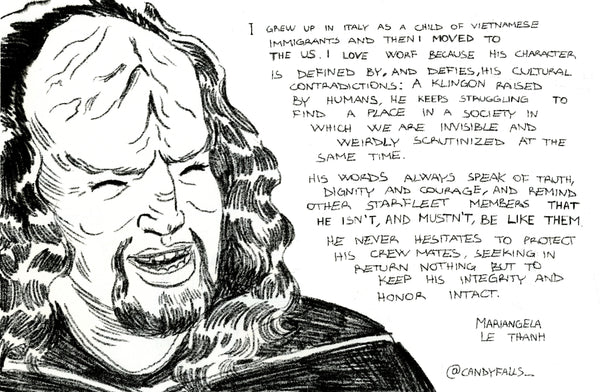 I GREW UP IN ITALY AS A CHILD OF VIETNAMESE
IMMIGRANTS AND THEN I MOVED TO
THE US. I LOVE WORF BECAUSE HIS CHARACTER
IS DEFINED BY, AND DEFIES, HIS CULTURAL
CONTRADICTIONS: A KLINGON RAISED
BY HUMANS, HE KEEPS STRUGGLING TO
FIND A PLACE IN A SOCIETY IN
WHICH WE ARE INVISIBLE AND
WEIRDLY SCRUTINIZED AT THE
SAME TIME.
HIS WORDS ALWAYS SPEAK OF TRUTH,
DIGNITY AND COURAGE, AND REMIND
OTHER STARFLEET MEMBERS THAT
HE ISN'T, AND MUSTN'T, BE LIKE THEM.
HE NEVER HESITATES TO PROTECT
HIS CREW MATES, SEEKING IN
RETURN NOTHING BUT TO
KEEP HIS INTEGRITY AND
HONOR INTACT.
MARIANGELA
LE THANH
@CANDYFALLS_